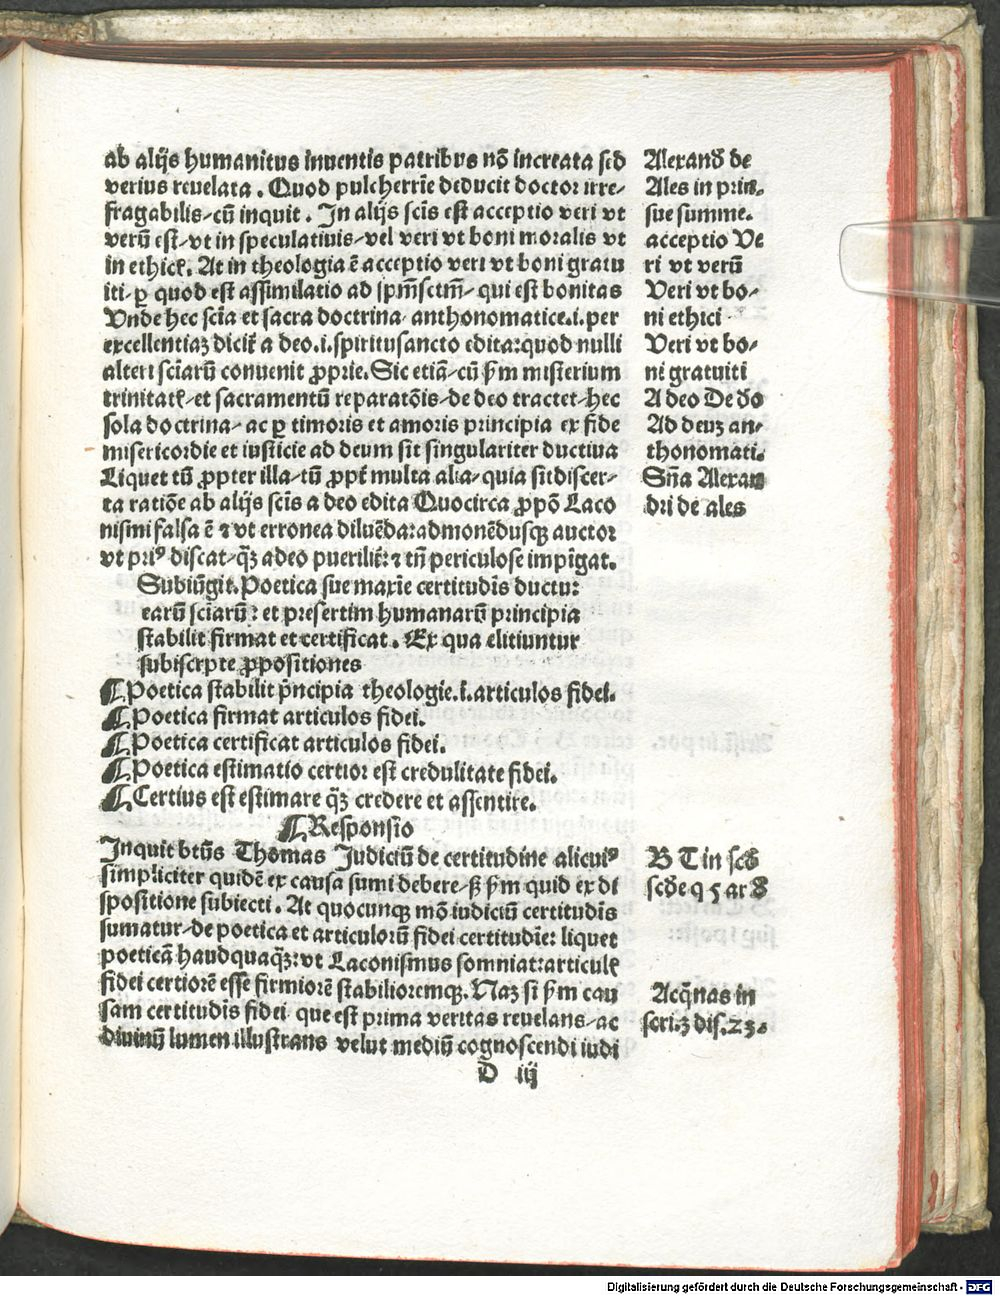 ab alijs humanitus inuentis patribus nõ increata sed
verius reuelata. Quod pulcherrīe deducit doctor irre-
fragabilis/cū inquit. In alijs scīs est acceptio veri vt
verū est/vt in speculatiuis/vel veri vt boni moralis vt
in ethicꝭ. At in theologia ē acceptio veri vt boni gratu
iti/ꝑ quod est assimilatio ad spm̄sctm̄/qui est bonitas
Vnde hec scīa et sacra doctrina/anthonomatice.i.per
excellentiaꝫ dicit̄ a deo.i.spiritusancto edita:quod nulli
alteri scīarū conuenit ꝓprie. Sic etiā/cū ẜm misterium
trinitatꝭ/et sacramentū reparatōis/de deo tractet/hec
sola doctrina/ac ꝑ timoris et amoris principia ex fide
misericordie et iusticie ad deum sit singulariter ductiua
Liquet tū ꝓpter illa/tū ꝓpt̄ multa alia/quia sit discer-
ta ratiōe ab alijs scīs a deo edita Quocirca ꝓpō Laco
nismi falsa ē ⁊ vt erronea diluēda:admonēdusqꝫ auctor
vt priꝰ discat/q̄ꝫ adeo puerilit̄:⁊ tn̄ periculose impīgat.
Subiūgit. Poetica sue maxīe certitudīs ductu:
earū scīarū: et presertim humanarū principia
stabilit firmat et certificat. Ex qua elitiuntur
subiscrpte ꝓpositiones
¶ Poetica stabilit p̄ncipia theologie.i.articulos fidei.
¶ Poetica firmat articulos fidei.
¶ Poetica certificat articulos fidei.
¶ Poetica estimatio certior est credulitate fidei.
¶ Certius est estimare q̄ꝫ credere et assentire.
¶ Responsio
Inquit btūs Thomas Iudiciū de certitudine alicuiꝰ
simpliciter quidē ex causa sumi debere/sꝫ ẜm quid ex di
spositione subiecti. At quocunqꝫ mō iudiciū certitudīs
sumatur/de poetica et articulorū fidei certitudīe: liquet
poeticā haudquaq̄ꝫ:vt Laconismus somniat:articulꝭ
fidei certiorē esse firmiorē stabilioremqꝫ. Naꝫ si ẜm cau
sam certitudīs fidei que est prima veritas reuelans/ac
diuinū lumen illustrans velut mediū cognoscendi iudi
D iij
Alexand de
Ales in prin-
sue summe.
acceptio Ve
ri vt verū
Veri vt bo-
ni ethici
Veri vt bo-
ni gratuiti
A deo De do
Ad deuꝫ an-
thonomati.
Sn̄a Alexan
dri de ales
B T in scd
scde q 5 ar 8
Acq̄nas in
scri.3 dis.23.
Digitalisierung gefördert durch die Deutsche Forschungsgemeinschaft - DFG